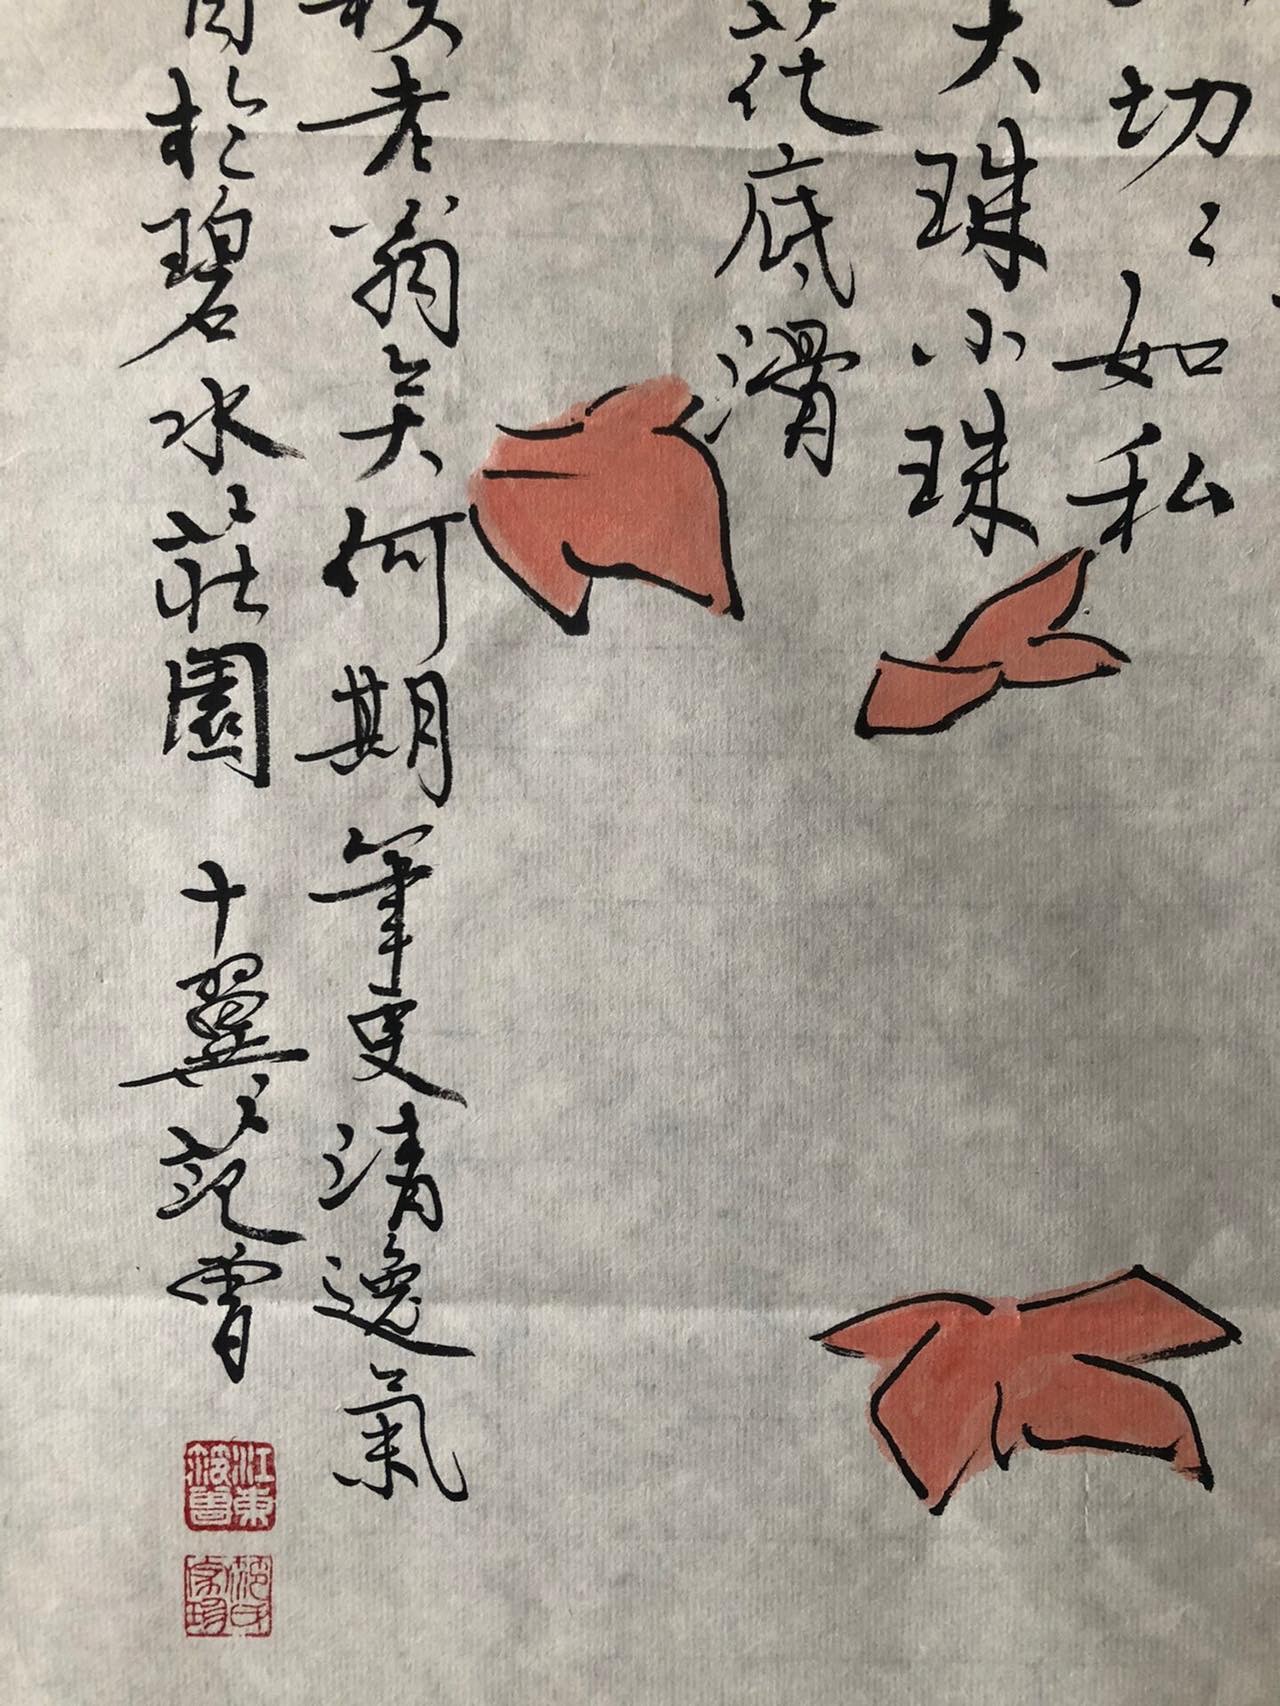 切〻如私
大珠小珠
花底滑
老翁矣何期筆更清逸氣
於碧水莊園 十翼范曾
江東范曾